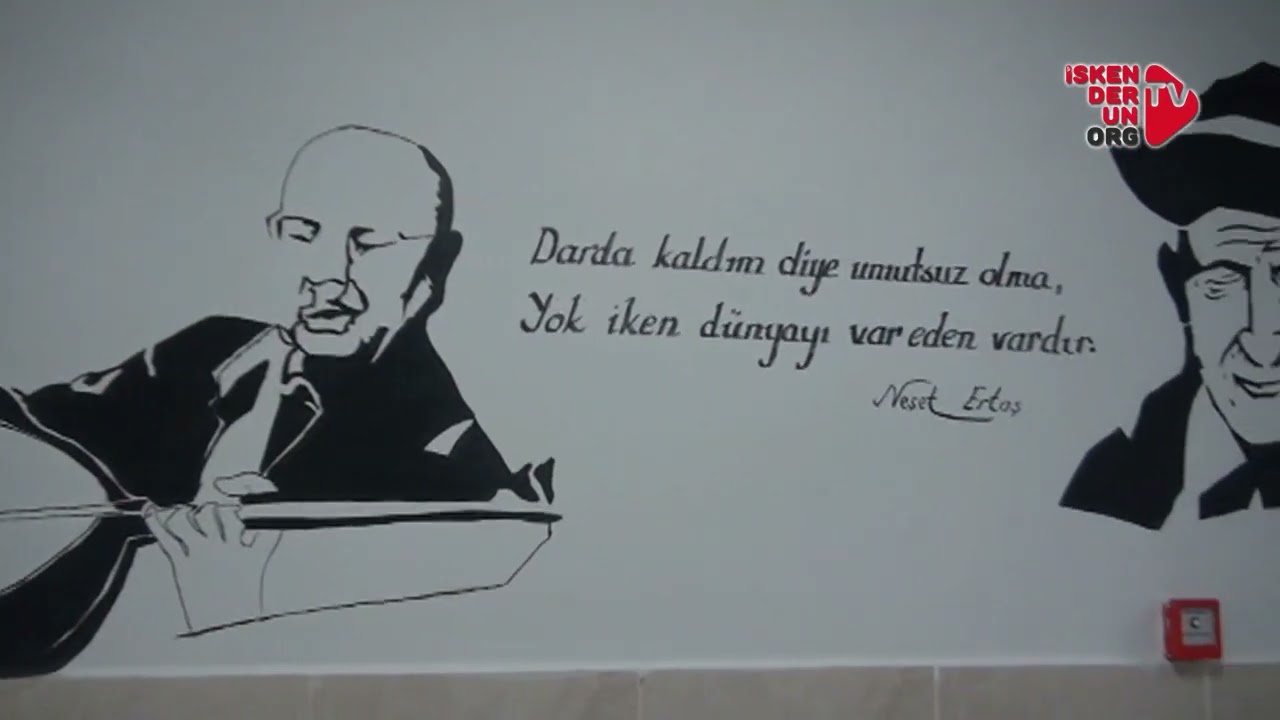 İSKEN
DER
UN
ORG
TV
Darda kaldım diye umutsuz olma,
Yok iken dünyayı var eden vardır.
Neşet Ertaş